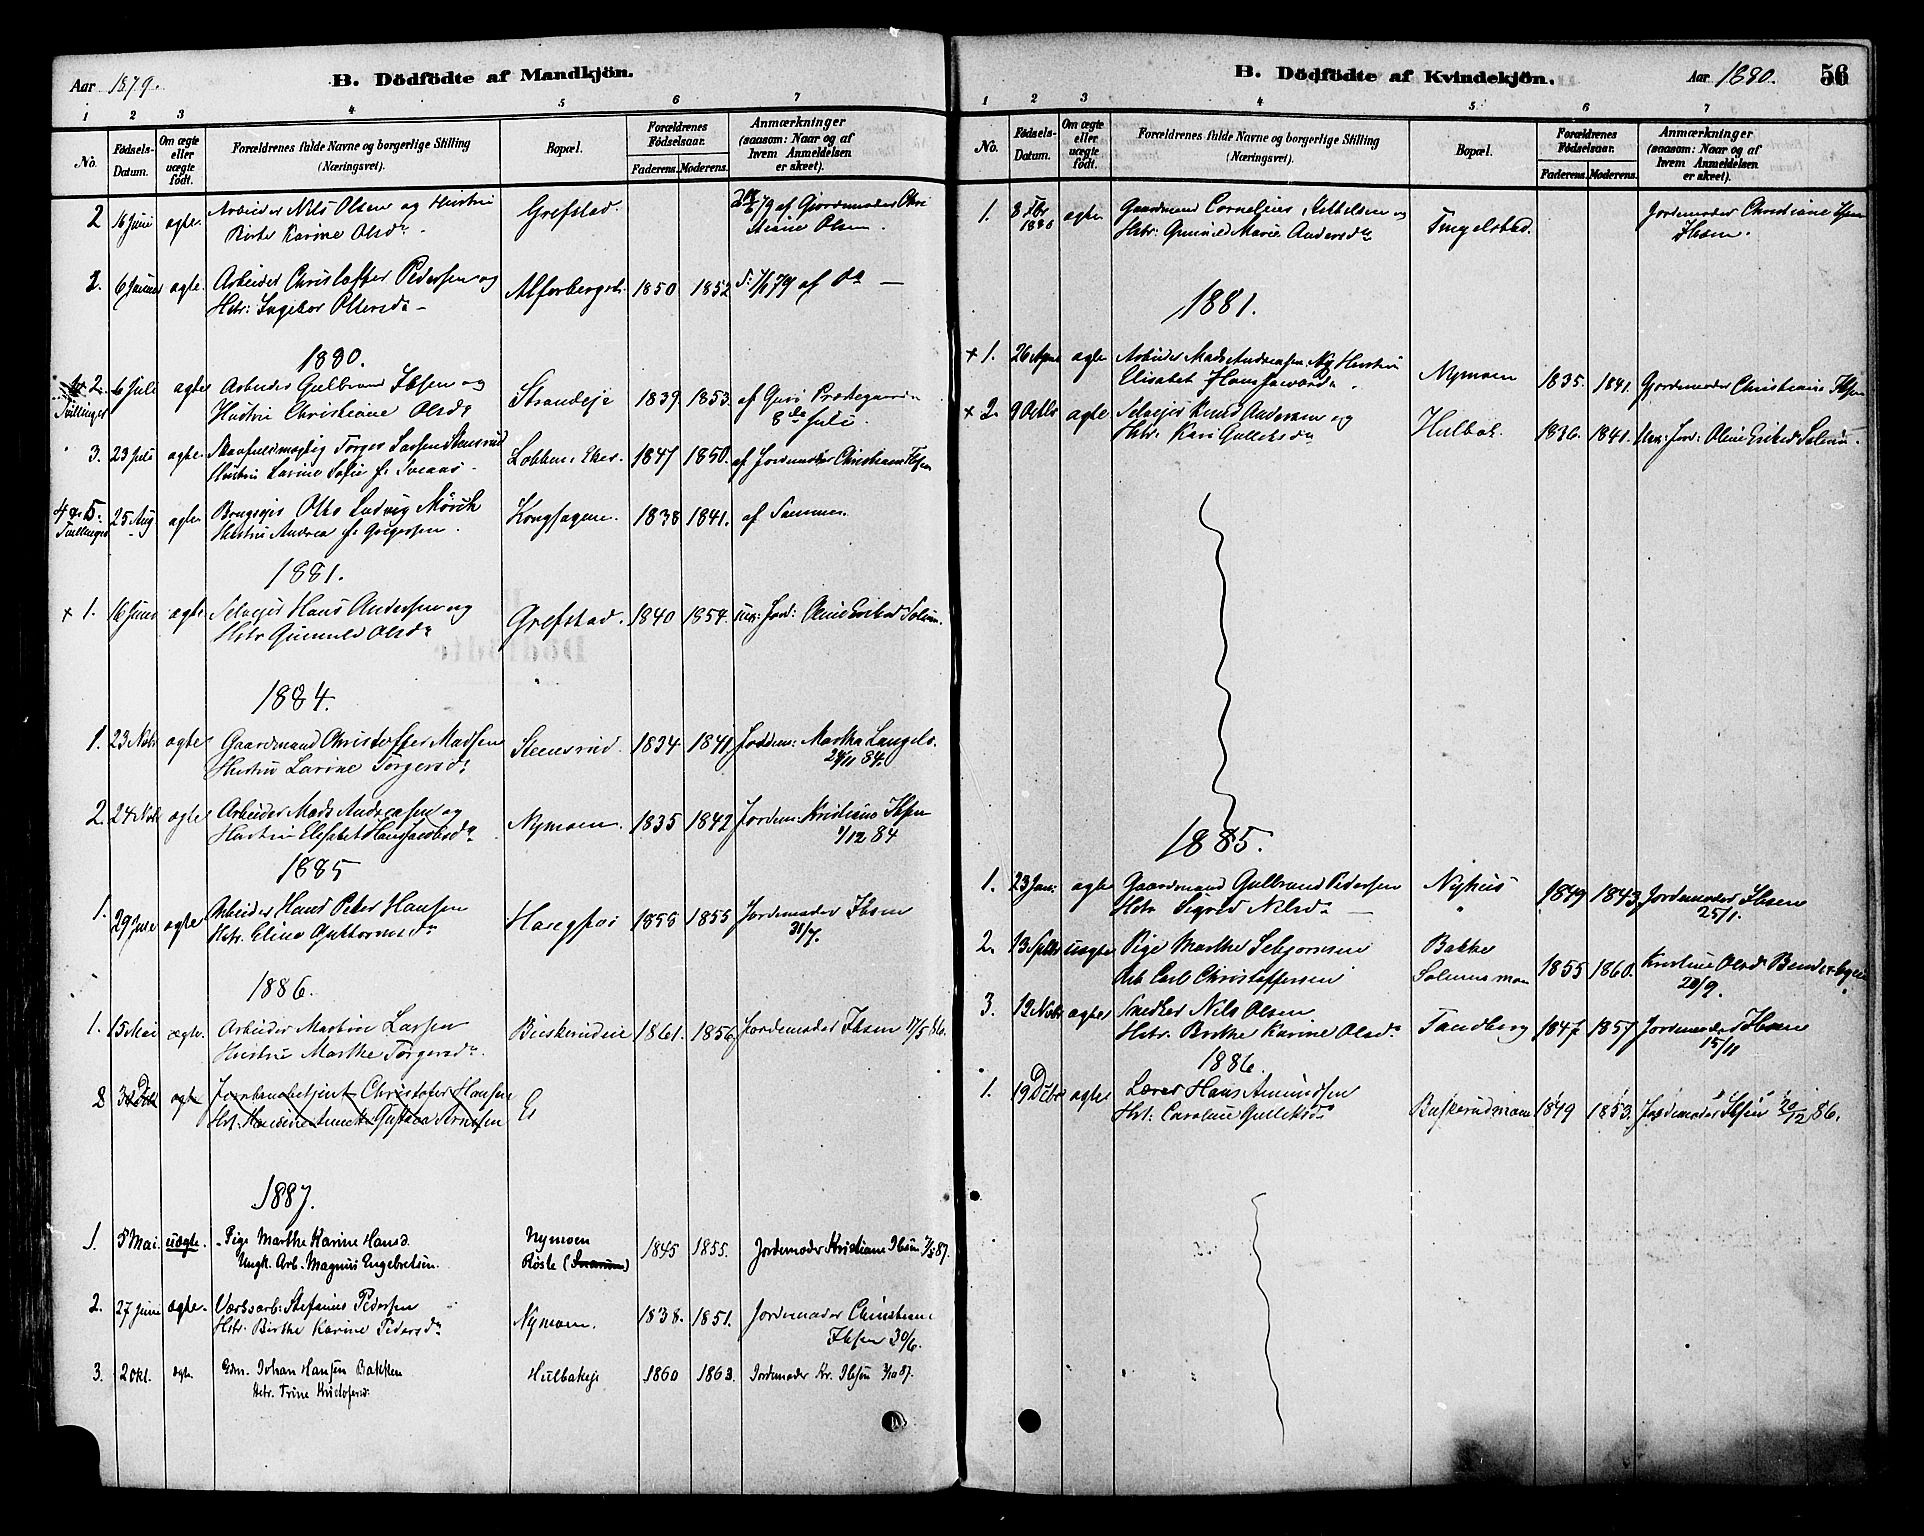 Aar 1879.
B. Dödfödte af Mandkjön.
1 2 3 4 5 6 7
No. Fødsels-Datum. Om ægte eller uægte født. Forældrenes fulde Navne og borgerlige Stilling (Næringsvei). Bopæl. Forældrenes Fødselsaar. Faderens. Moderens. Anmærkninger (saasom: Naar og af hvem Anmeldelsen er skeet).
2 16 Juni ægte Arbeider Nils Olsen og Hustru Grefstad. 79 af Gjordemoder Chri
Birte Karine Olsdr. stiane Olsen.
2. 6 ægte. Arbeider Christoffer Pedersen og 1850 1852 79 af do —
Hstr: Ingebor Olsersdr —
1880.
2. 6 Juli ægte Arbeider Gulbrand Ibsen og Strandeje 1839 1853. af Guri
Tvillinger Hustru Christiane Olsdr 8de Juli.
3. 23 Juli ægte Torger Larsen Stensrud 1847 1850. af Jordemoder Christiane Ibsen
Hustru Lavine Sofie f. Svaas.
4 & 5. 25 Aug ægte Brugseier Otto Ludvig Mörch Kongsagene. 1838 1841. af Samme.
Tvillinger Hustru Andrea f. Gregersen.
1881.
+ 1. 16 Juni ægte Selveier Hans Andersen og Grefstad. 1840 1854. Jord: Oline Eriksd Solum.
Hstr Gunnild Olsdr
1884.
1. 23 Nvbr ægte Gaardmand Christoffer Madsen Steensrud. 1834 1841. Jordem: Martha Langels.
Hustru Lavine Torgersdr 24/11 84.
2. 24 Nvb ægte Arbeider Mads Andreasen og Nymoen. 1835 1842 Jordem. Kristiane Ibsen
Hustru Elisabet Hansjacobsdr. 1/12 84
1885
1. 29 ægte Arbeider Hans Peter Hansen 1855 1855 Jordemoder Ibsen
Hstr. Eline Guttormsdr 31/7.
1886.
1. 15 Mai ægte. Arbeider Martin Larsen Buskerudeie 1861. 1856 Jordemoder Ibsen 17/5 86.
Hustru Marthe Torgersdr.
2 ægte Jernbanebetjent Christofer Hansen
1887.
1. 5 Mai. uægte. Pige Marthe Karine Hansd. Nymoen 1845 1855. Jordemoder Kristiane Ibsen 7/5 87.
Ungk. Arb. Magnus Engebretsen. Røste (Snarum)
2. 27 Juni ægte. Værksarb. Stefanus Pedersen Nymoen. 1838. 1851. Jordemoder Christiane
Hstr. Birthe Karine Pedersdr Ibsen 30/6.
3. 2 okt. ægte Gdm. Johan Hansen Bakken Hulbakeje 1860 1863. Jordemoder Kr. Ibsen 3/10 87.
Hstr. Trine Kristofersd.
B. Dödfödte af Kvindekjön.
Aar 1880. 56
1 2 3 4 5 6 7
No. Fødsels-Datum. Om ægte eller uægte født. Forældrenes fulde Navne og borgerlige Stilling (Næringsvei). Bopæl. Forældrenes Fødselsaar. Faderens. Moderens. Anmærkninger (saasom: Naar og af hvem Anmeldelsen er skeet).
1. 8 Fbr 1880 ægte Gaardmand Cornelius Kittelsen og Tingelstad. Jordemoder Christiane
Hstr: Gunnild Marie Andersdr Ibsen.
1881.
+ 1. 26 April ægte Arbeider Mads Andreasen og Hustru Nymoen 1835. 1841. Gjordemoder Christiane Ibsen
Elisabet Hansjacobsdr.
+ 2. 9 Octbr ægte Selveier Knud Andersen og Hulbak. 1836. 1841. Jord: Oline Eriksd Solum.
Hstr. Kari Gulliksdr
1885.
1. 23 Jan: ægte Gaardmand Gulbrand Pedersen Nyhus 1849 1843. Jordemoder Ibsen
Hstr Sigrid Nilsdr — 25/1.
2. 13 Septbr uægte Pige Marthe Bakke 1855 1860. Kristine Olsd
Arb Carl Christoffersen 20/9.
3. 12 Nvbr ægte Snedker Nils Olsen Tandberg 1847 1857 Jordemoder Ibsen
Hstr. Birthe Karine Olsdr 15/11
1886.
1. 19 Dcbr ægte Lærer Hans Amundsen Buskerudmoen 1849 1853. Jordemoder Ibsen 20/12 86.
Hst: Caroline Gulliksdr